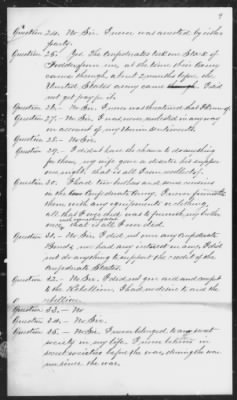 9
Question 24. No Sir. I never was arrested by either
party.
Question 25. Yes. The Confederates took one Stack of
Fodder from me, at the time their Army
came through about 2 months before the
United States army came through. I did
not get pay for it.
Question 26. No Sir. I never was threatened that I know of.
Question 27. No Sir I was never molested in any way
on account of my Union sentiments.
Question 28. No Sir.
Question 29. I did not have the chance to do anything
for them, my wife gave a deserter his supper
one night, that is all I can recollect.
Question 30. I had two brothers and some cousins
in the Confederate Army. I never furnished
them with any equipments or clothing,
all that I ever did was to furnish my brother
one, that is all I ever did.
Question 31. No Sir, I did not own any Confederate
Bonds, nor had any interest in any. I did
not do anything to support the credit of the
Confederate States.
Question 32. No Sir. I did not give aid and comfort
to the Rebellion. I had no desire to aid the
rebellion.
Question 33. No
Question 34. No Sir.
Question 35. No Sir. I never belonged to any secret
society in my life. I never belonged to
secret societies before the war, during the war
nor since the war.